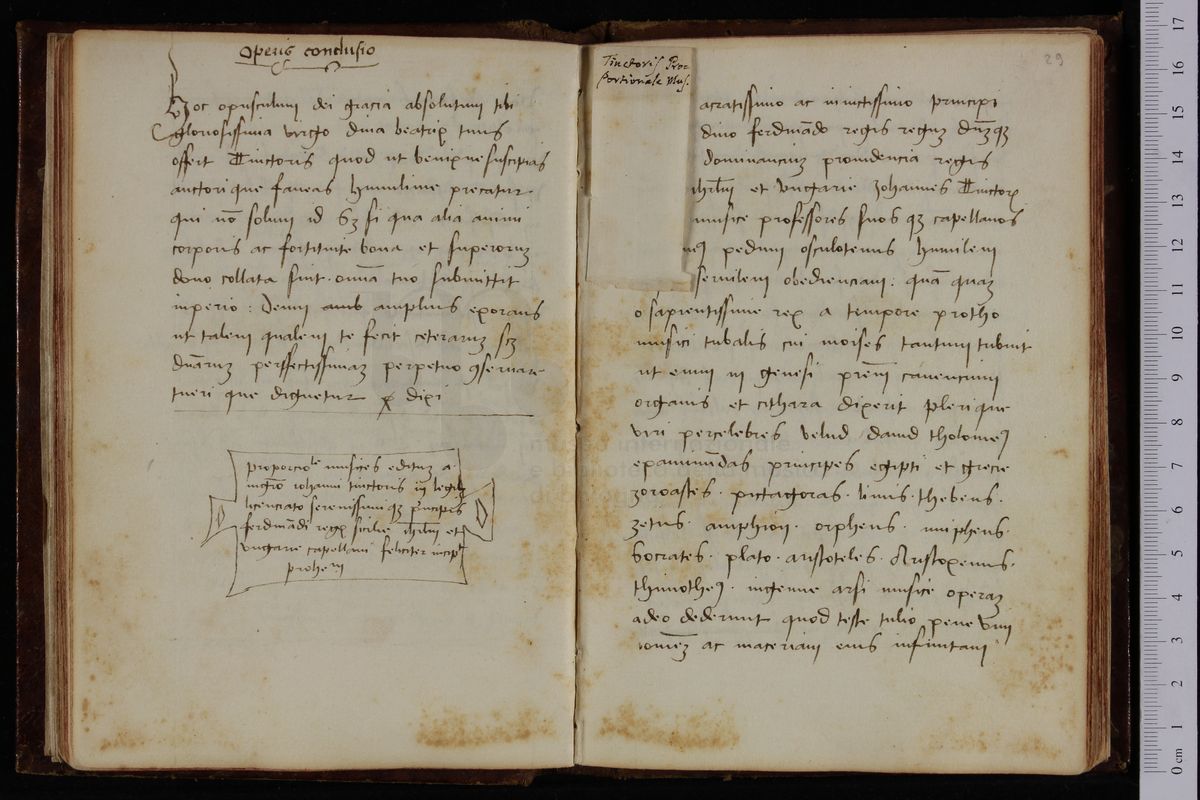 Operis conclusio
Hoc opusculum dei gracia absolutum tibi
gloriosissima virgo diva beatrix tuus
offert Tinctoris quod ut benigne suscipias
auctori que faveas humilime precatur
qui nō solum id sʒ si qua alia animi
corporis ac fortunite bona et superorum
dono collata sint. omīa tuo submittit
inperio: Demum amplius exorans
ut talem qualem te fecit ceterarum
dīiarum perffectissimam perpetuo ꝯservare
tueri que dignetur dixi
proporcioͣle musices editum a
mgrō iohanni tinctoris in legibȝ
licenciato serenissimi qȝ principis
ferdinādi regis sicilie ihrlm et
ungarie capellani feliciter incipt
prohem
Tinctoris Pro-
portionale Mus.
29
acratissimo ac invictissimo principi
divo ferdināndo regis regum dn̄mqȝ
dominancium providencia regis
ihrlm et ungarie Johannes Tinctoris
musice professores suos qȝ capellanos
pedum osculotenus humilem
servilem obedienciam: quā quam
o sapientissime rex a tempore protho
musici tubalis cui moises tantum tribuit
ut eum in genesi canencium
organis et cithara dixerit plerique
viri percelebres velud david tholomeꝰ
epaminūdas principes egipti et grecie
zoroastes. pictagoras. linus. thebeus.
zetus. amphion. orpheus. mupheus.
Socrates. plato. aristoteles. Aristoxenus.
thimotheꝰ. ingenue arsi musice operam
adeo dederunt quod teste tulio pene vim
iomēȝ ac materiam eius infinitam
0 cm 1 2 3 4 5 6 7 8 9 10 11 12 13 14 15 16 17